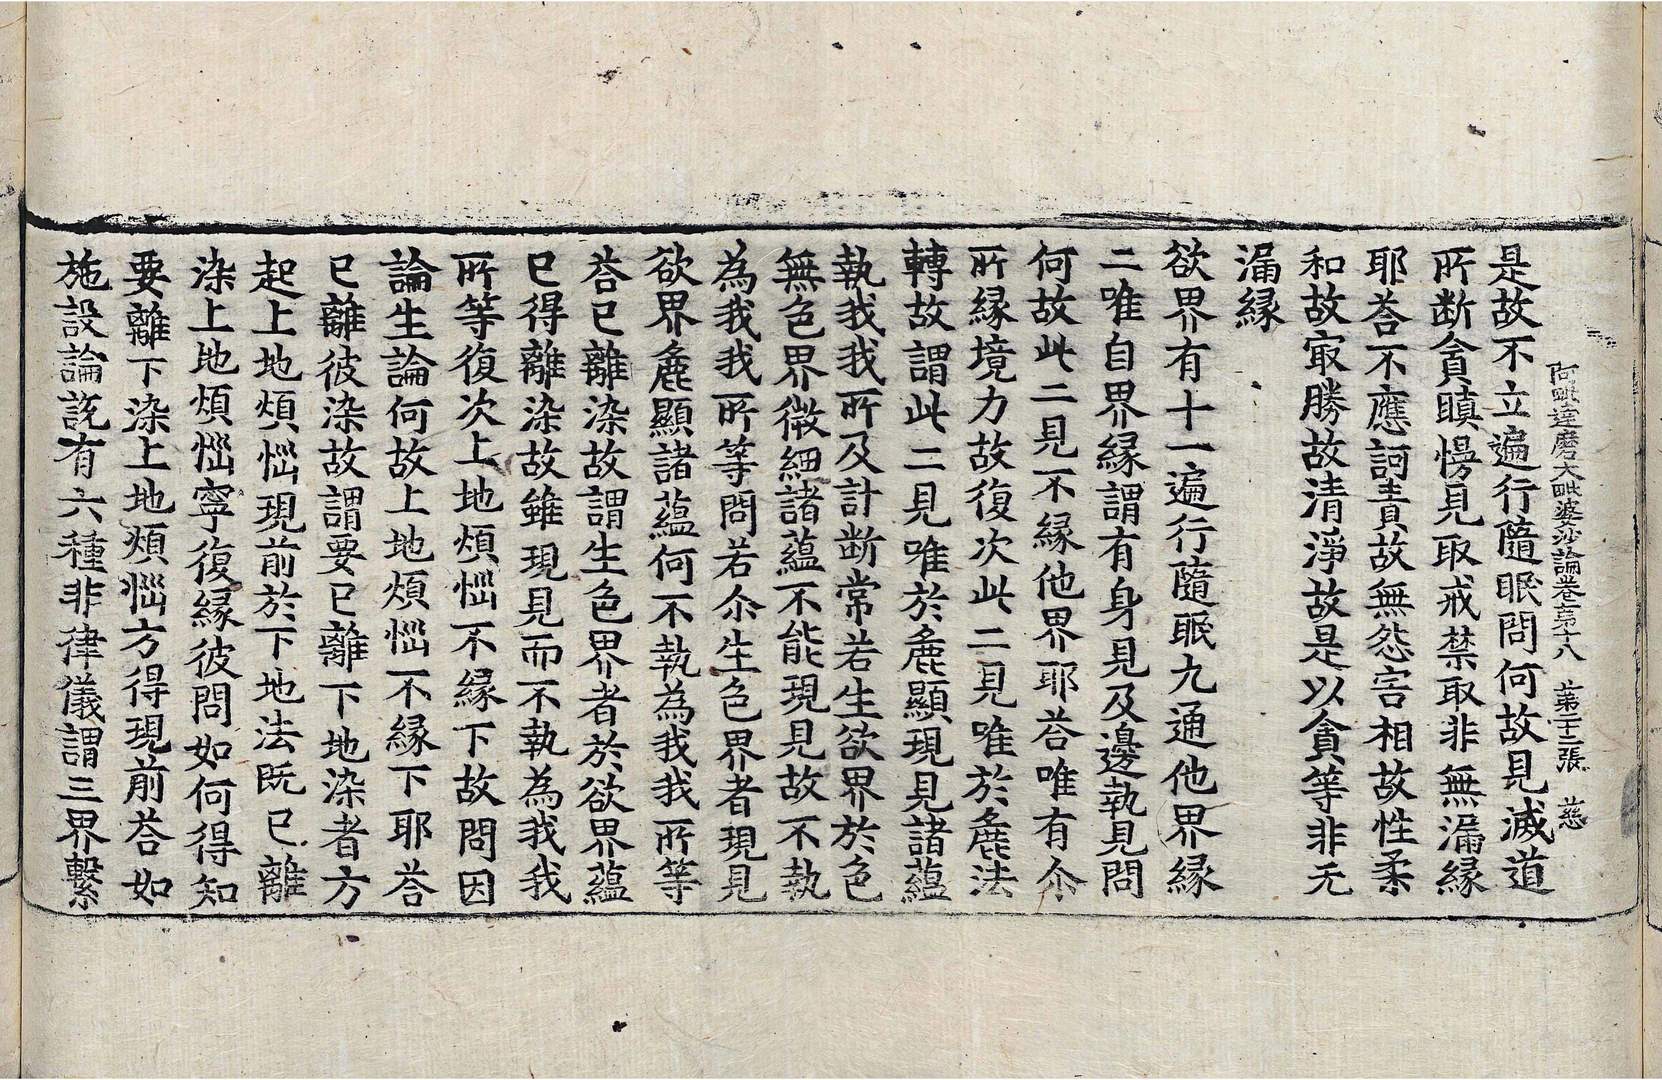 阿毗達磨大毗婆沙論卷苐十八　苐二十三張　慈
是故不立遍行隨眠問何故見滅道
所断貪瞋慢見取戒禁取非無漏緣
耶荅不應訶責故無怨害相故性柔
和故㝡勝故清淨故是以貪等非无
漏縁
欲界有十一遍行隨眠九通他界縁
二唯自界縁謂有身見及邊執見問
何故此二見不縁他界耶荅唯有尒
所縁境力故復次此二見唯於麁法
轉故謂此二見唯於麁顯現見諸蘊
執我我所及計断常若生欲界於色
無色界微細諸蘊不能現見故不執
為我我所等問若尒生色界者現見
欲界麁顯諸蘊何不執為我我所等
荅已離染故謂生色界者於欲界蘊
已得離染故雖現見而不執為我我
所等復次上地煩惱不縁下故問因
論生論何故上地煩惱不縁下耶荅
已離彼染故謂要已離下地染者方
起上地煩惱現前於下地法既已離
染上地煩惱寧復縁彼問如何得知
要離下染上地煩惱方得現前荅如
施設論説有六種非律儀謂三界繫